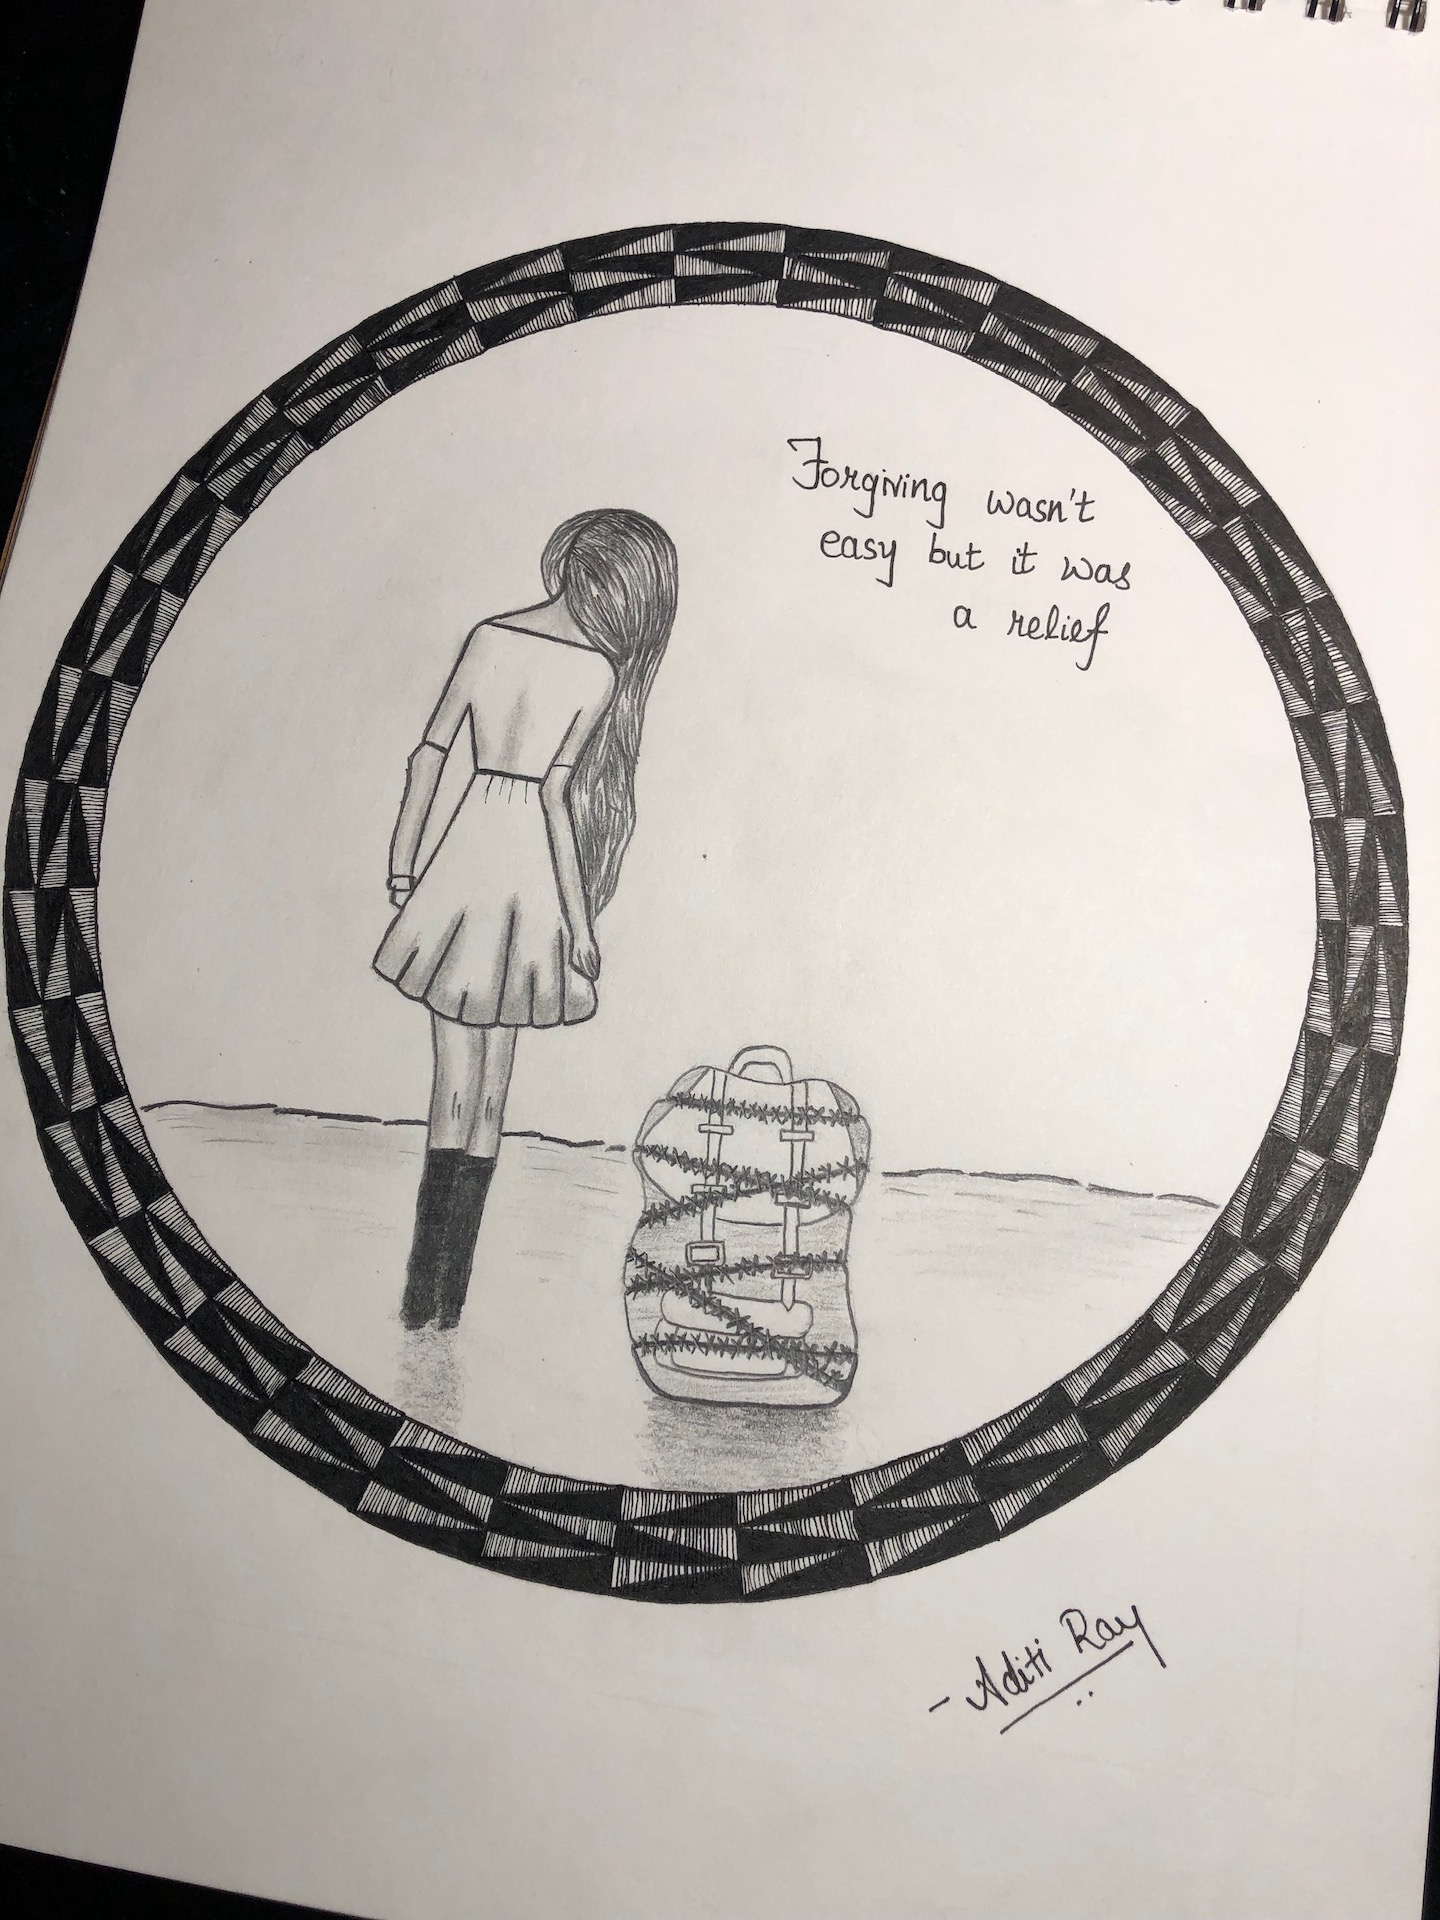 Forgiving wasn't
easy but it was
a relief
- Aditi Ray